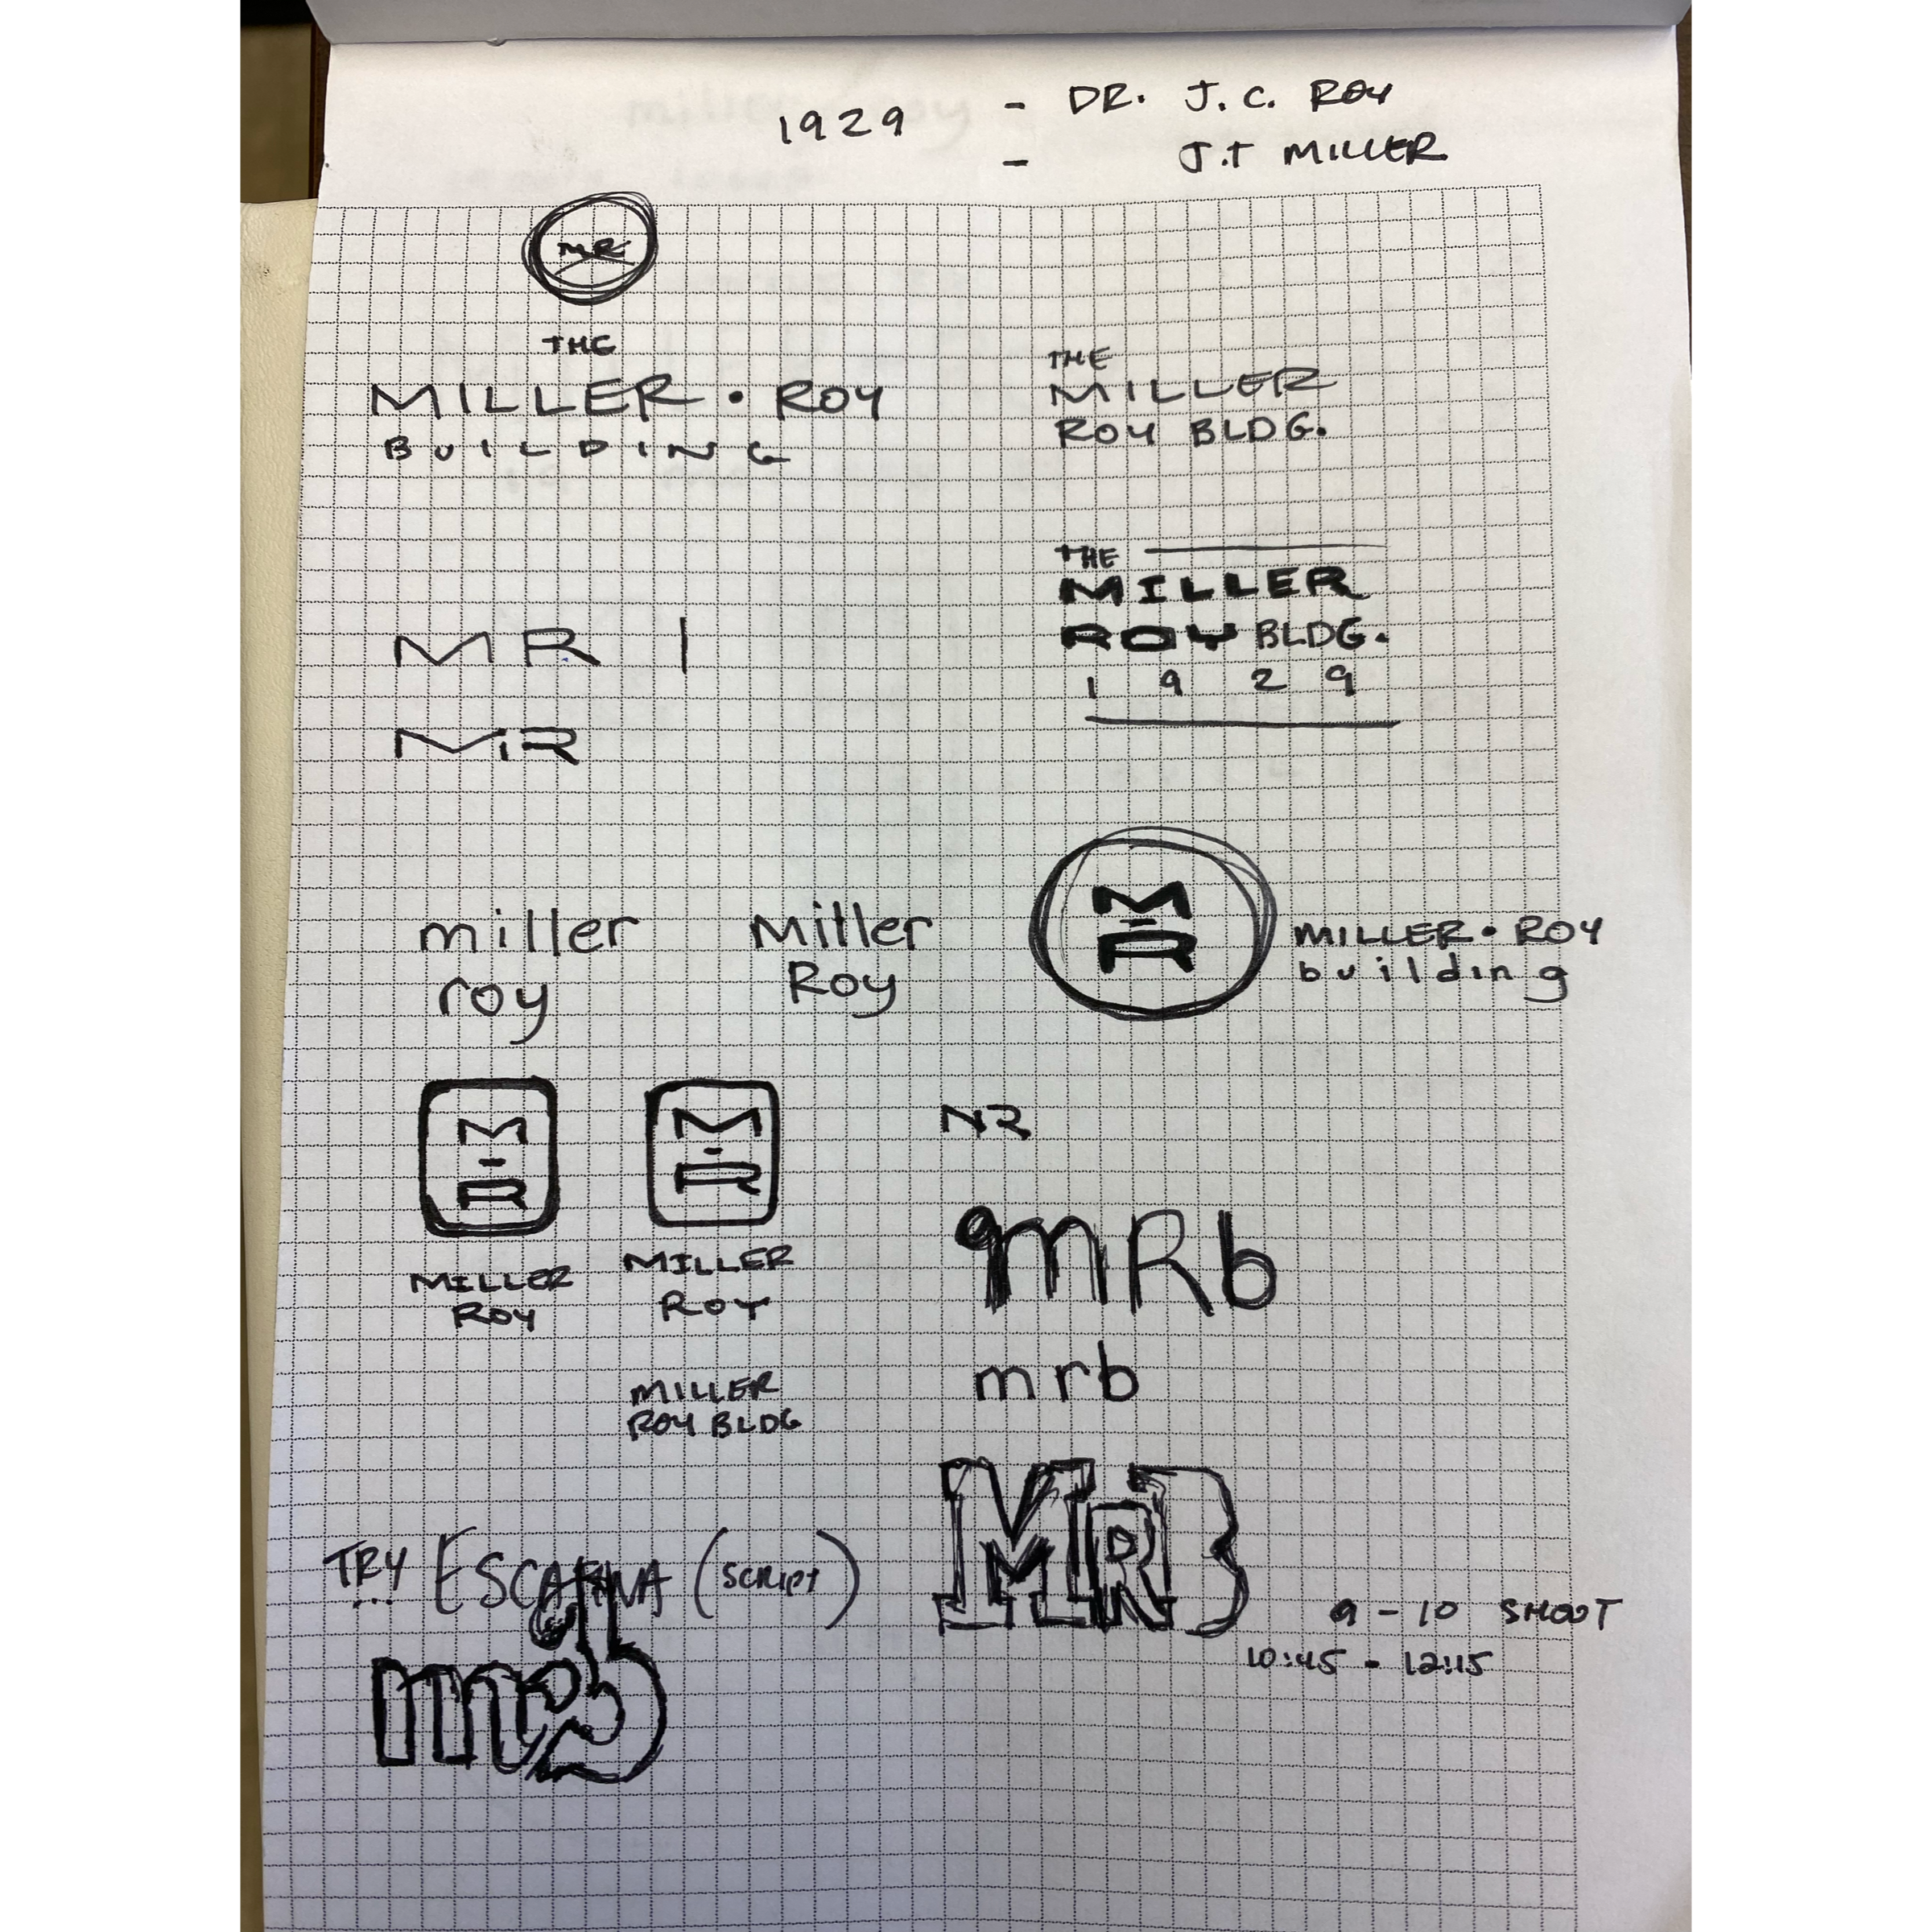 1929 - DR. J. C. ROY
- J.T MILLER
MR
THE
MILLER • ROY
BUILDING
THE
MILLER
ROY BLDG.
THE
MILLER
ROY BLDG.
1929
MR |
MR
miller
roy
Miller
Roy
M-R
MILLER • ROY
building
M-R
MILLER
ROY
M-R
MILLER
ROY
MILLER
ROY BLDG
NR
mRb
mrb
MRB
TRY ... (SCRIPT)
mrb
9 - 10 SHOOT
10:45 - 12:15